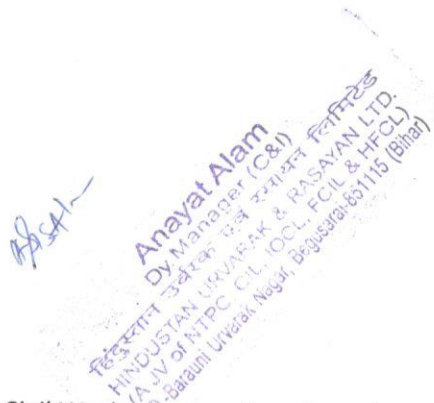 Anayat Alam
Dy. Manager (C&I)
हिंदुस्तान उर्वरक एवं रसायन लिमिटेड
HINDUSTAN URVARAK & RASAYAN LTD.
(A JV of NTPC, CIL, IOCL, FCIL & HFCL)
-Barauni Urvarak Nagar, Begusarai-851115 (Bihar)